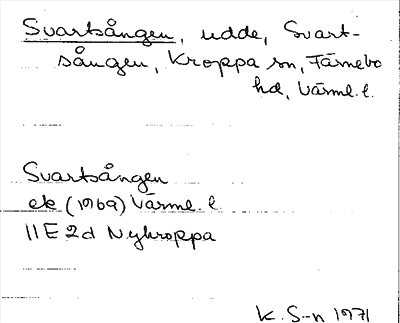 Svartsången, udde, Svart-
sången, Kroppa sn, Färnebo
hd, Värml. l.
Svartsången
ek (1969) Värml. l.
11E 2d Nykroppa
K. S-n 1971